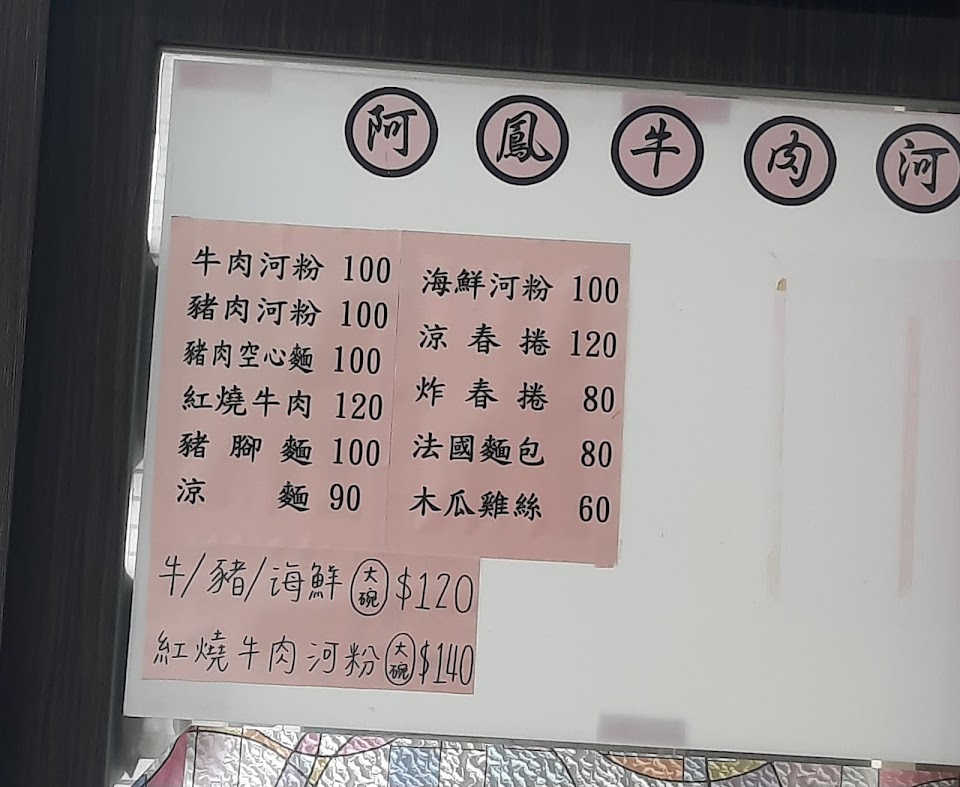 阿鳳牛肉河
牛肉河粉 100
豬肉河粉 100
豬肉空心麵 100
紅燒牛肉 120
豬腳麵 100
涼麵 90
海鮮河粉 100
涼春捲 120
炸春捲 80
法國麵包 80
木瓜雞絲 60
牛/豬/海鮮 大碗 $120
紅燒牛肉河粉 大碗 $140